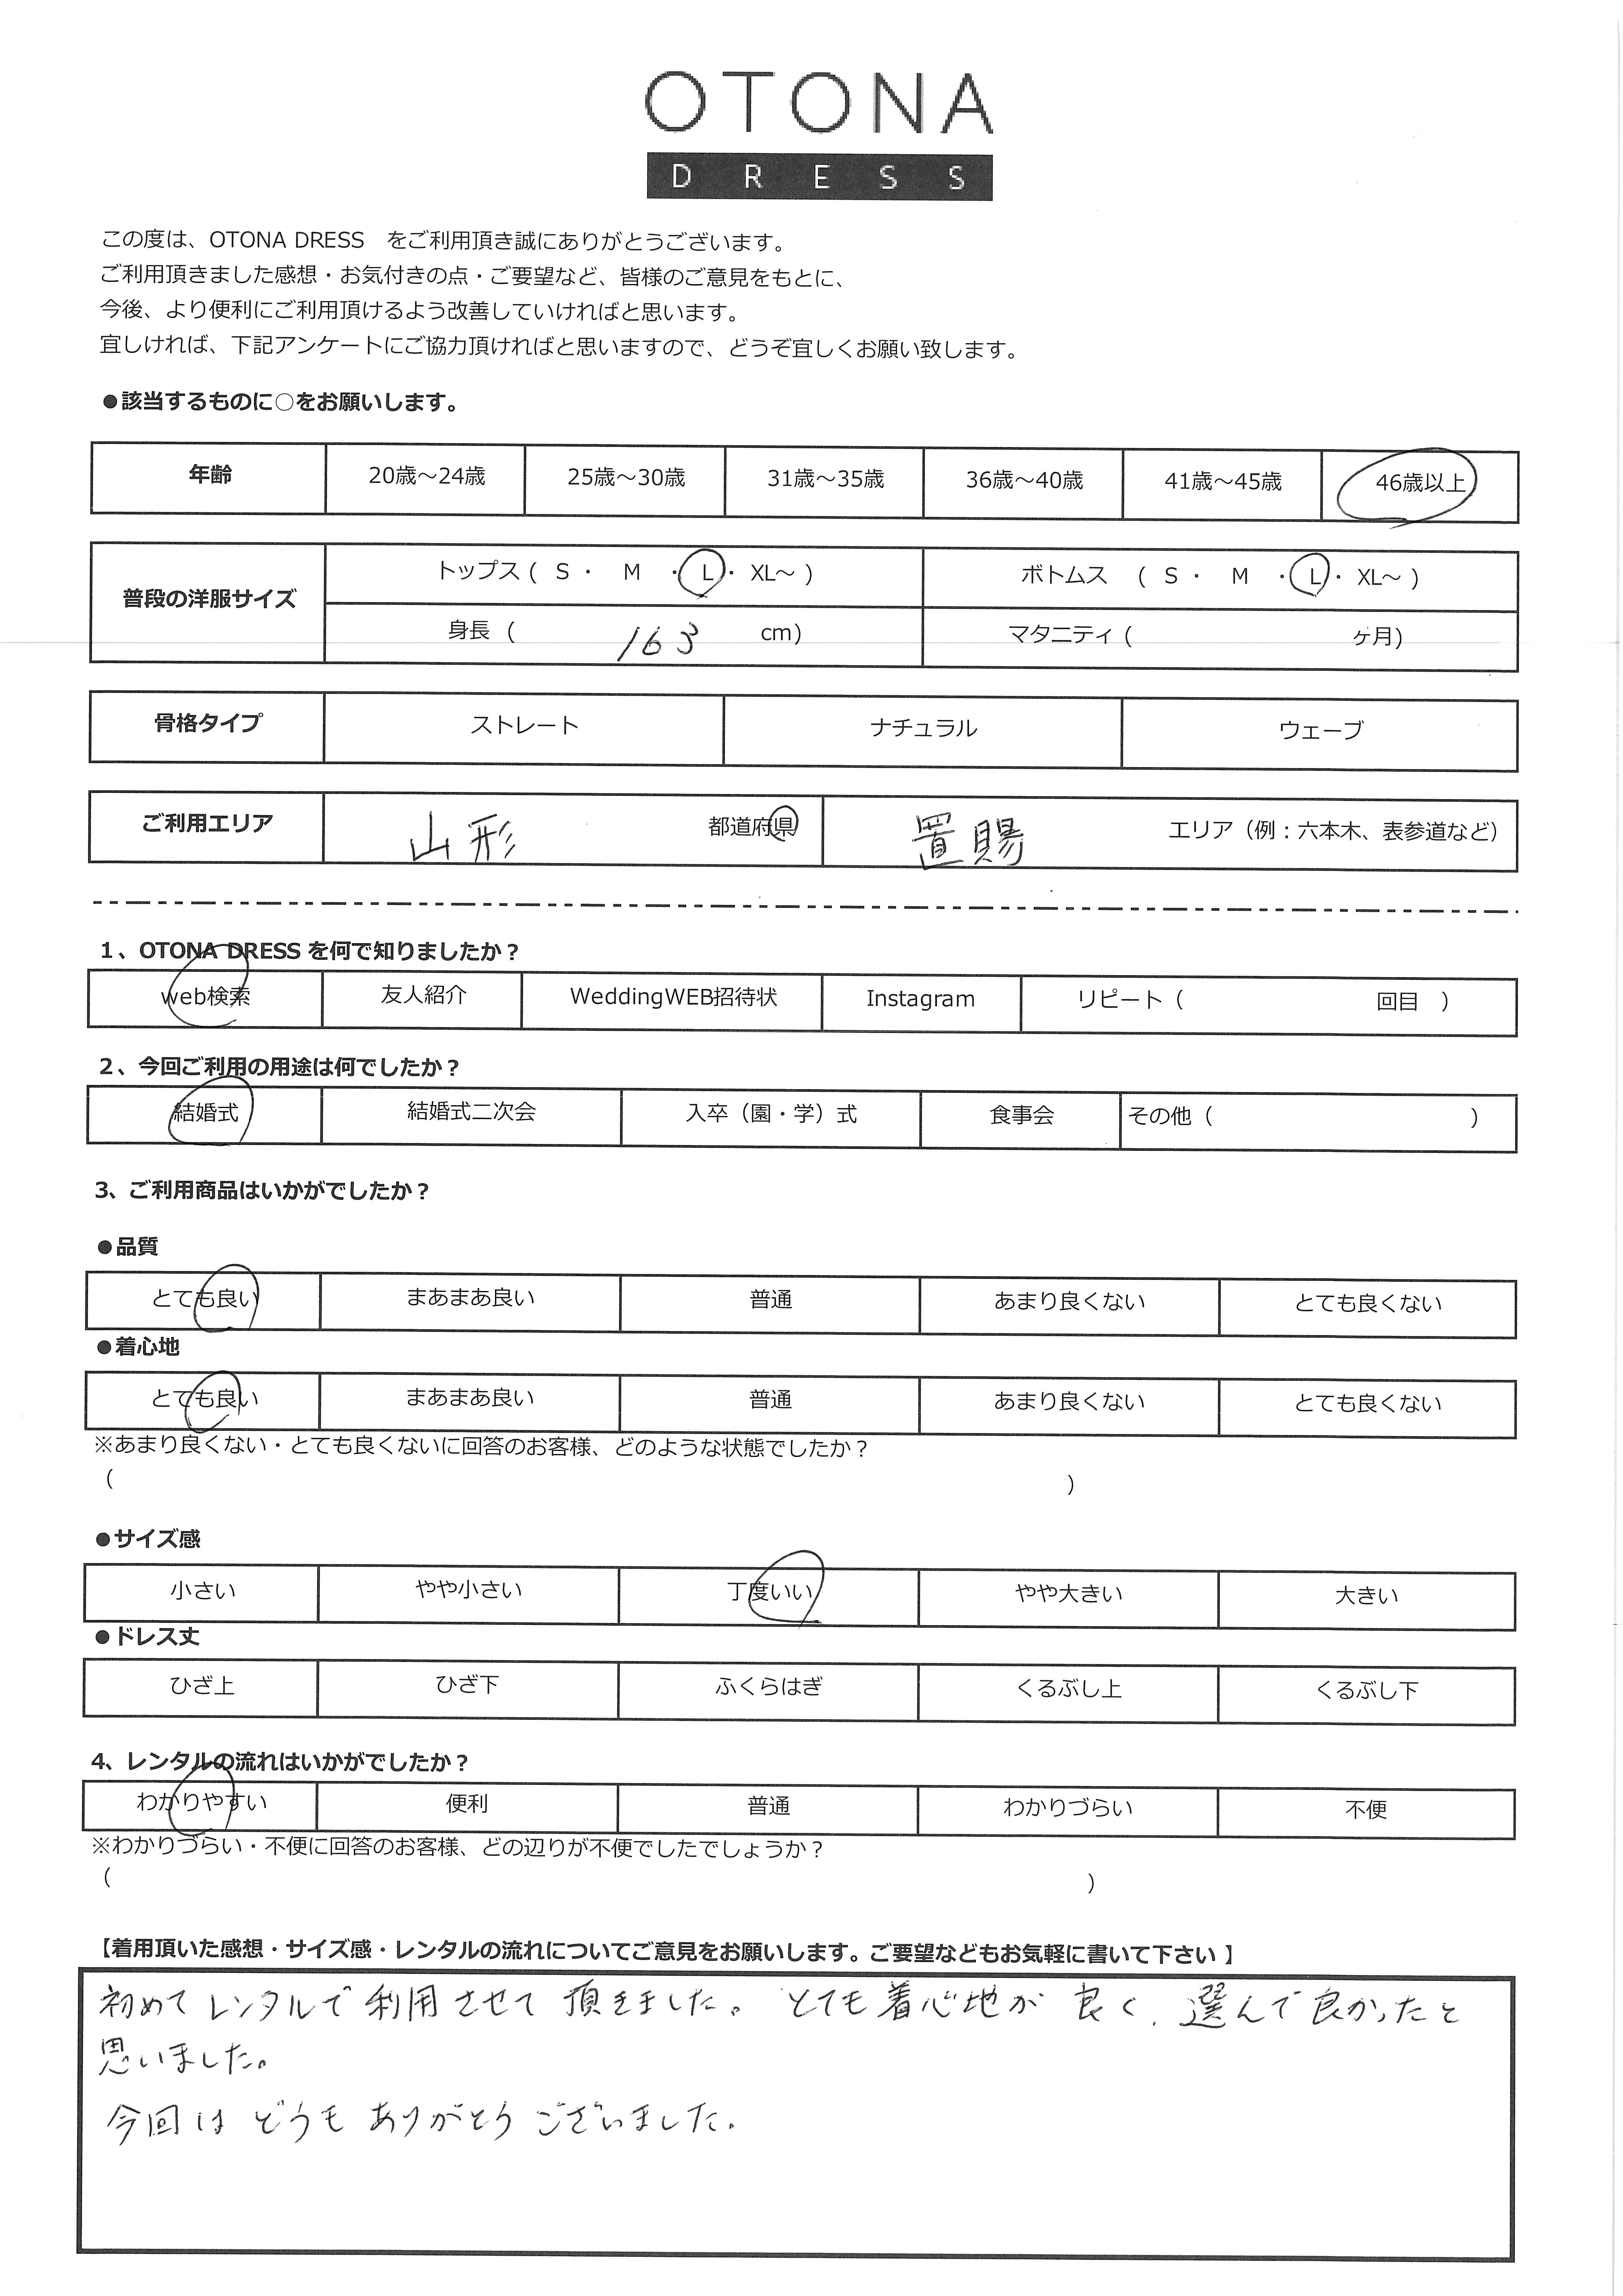 OTONA
DRESS
この度は、OTONA DRESS　をご利用頂き誠にありがとうございます。
ご利用頂きました感想・お気付きの点・ご要望など、皆様のご意見をもとに、
今後、より便利にご利用頂けるよう改善していければと思います。
宜しければ、下記アンケートにご協力頂ければと思いますので、どうぞ宜しくお願い致します。
●該当するものに○をお願いします。
年齢 20歳～24歳 25歳～30歳 31歳～35歳 36歳～40歳 41歳～45歳 46歳以上
普段の洋服サイズ トップス（ S ・ M ・ L ・ XL～ ） ボトムス （ S ・ M ・ L ・ XL～ ）
身長（ 163 cm） マタニティ（ ヶ月）
骨格タイプ ストレート ナチュラル ウェーブ
ご利用エリア 山形 都道府県 置賜 エリア（例：六本木、表参道など）
1、OTONA DRESS を何で知りましたか？
web検索 友人紹介 WeddingWEB招待状 Instagram リピート（ 回目 ）
2、今回ご利用の用途は何でしたか？
結婚式 結婚式二次会 入卒（園・学）式 食事会 その他（ ）
3、ご利用商品はいかがでしたか？
●品質
とても良い まあまあ良い 普通 あまり良くない とても良くない
●着心地
とても良い まあまあ良い 普通 あまり良くない とても良くない
※あまり良くない・とても良くないに回答のお客様、どのような状態でしたか？
（ ）
●サイズ感
小さい やや小さい 丁度いい やや大きい 大きい
●ドレス丈
ひざ上 ひざ下 ふくらはぎ くるぶし上 くるぶし下
4、レンタルの流れはいかがでしたか？
わかりやすい 便利 普通 わかりづらい 不便
※わかりづらい・不便に回答のお客様、どの辺りが不便でしたでしょうか？
（ ）
【着用頂いた感想・サイズ感・レンタルの流れについてご意見をお願いします。ご要望などもお気軽に書いて下さい 】
初めてレンタルで利用させて頂きました。とても着心地が良く、選んで良かったと
思いました。
今回はどうもありがとうございました。